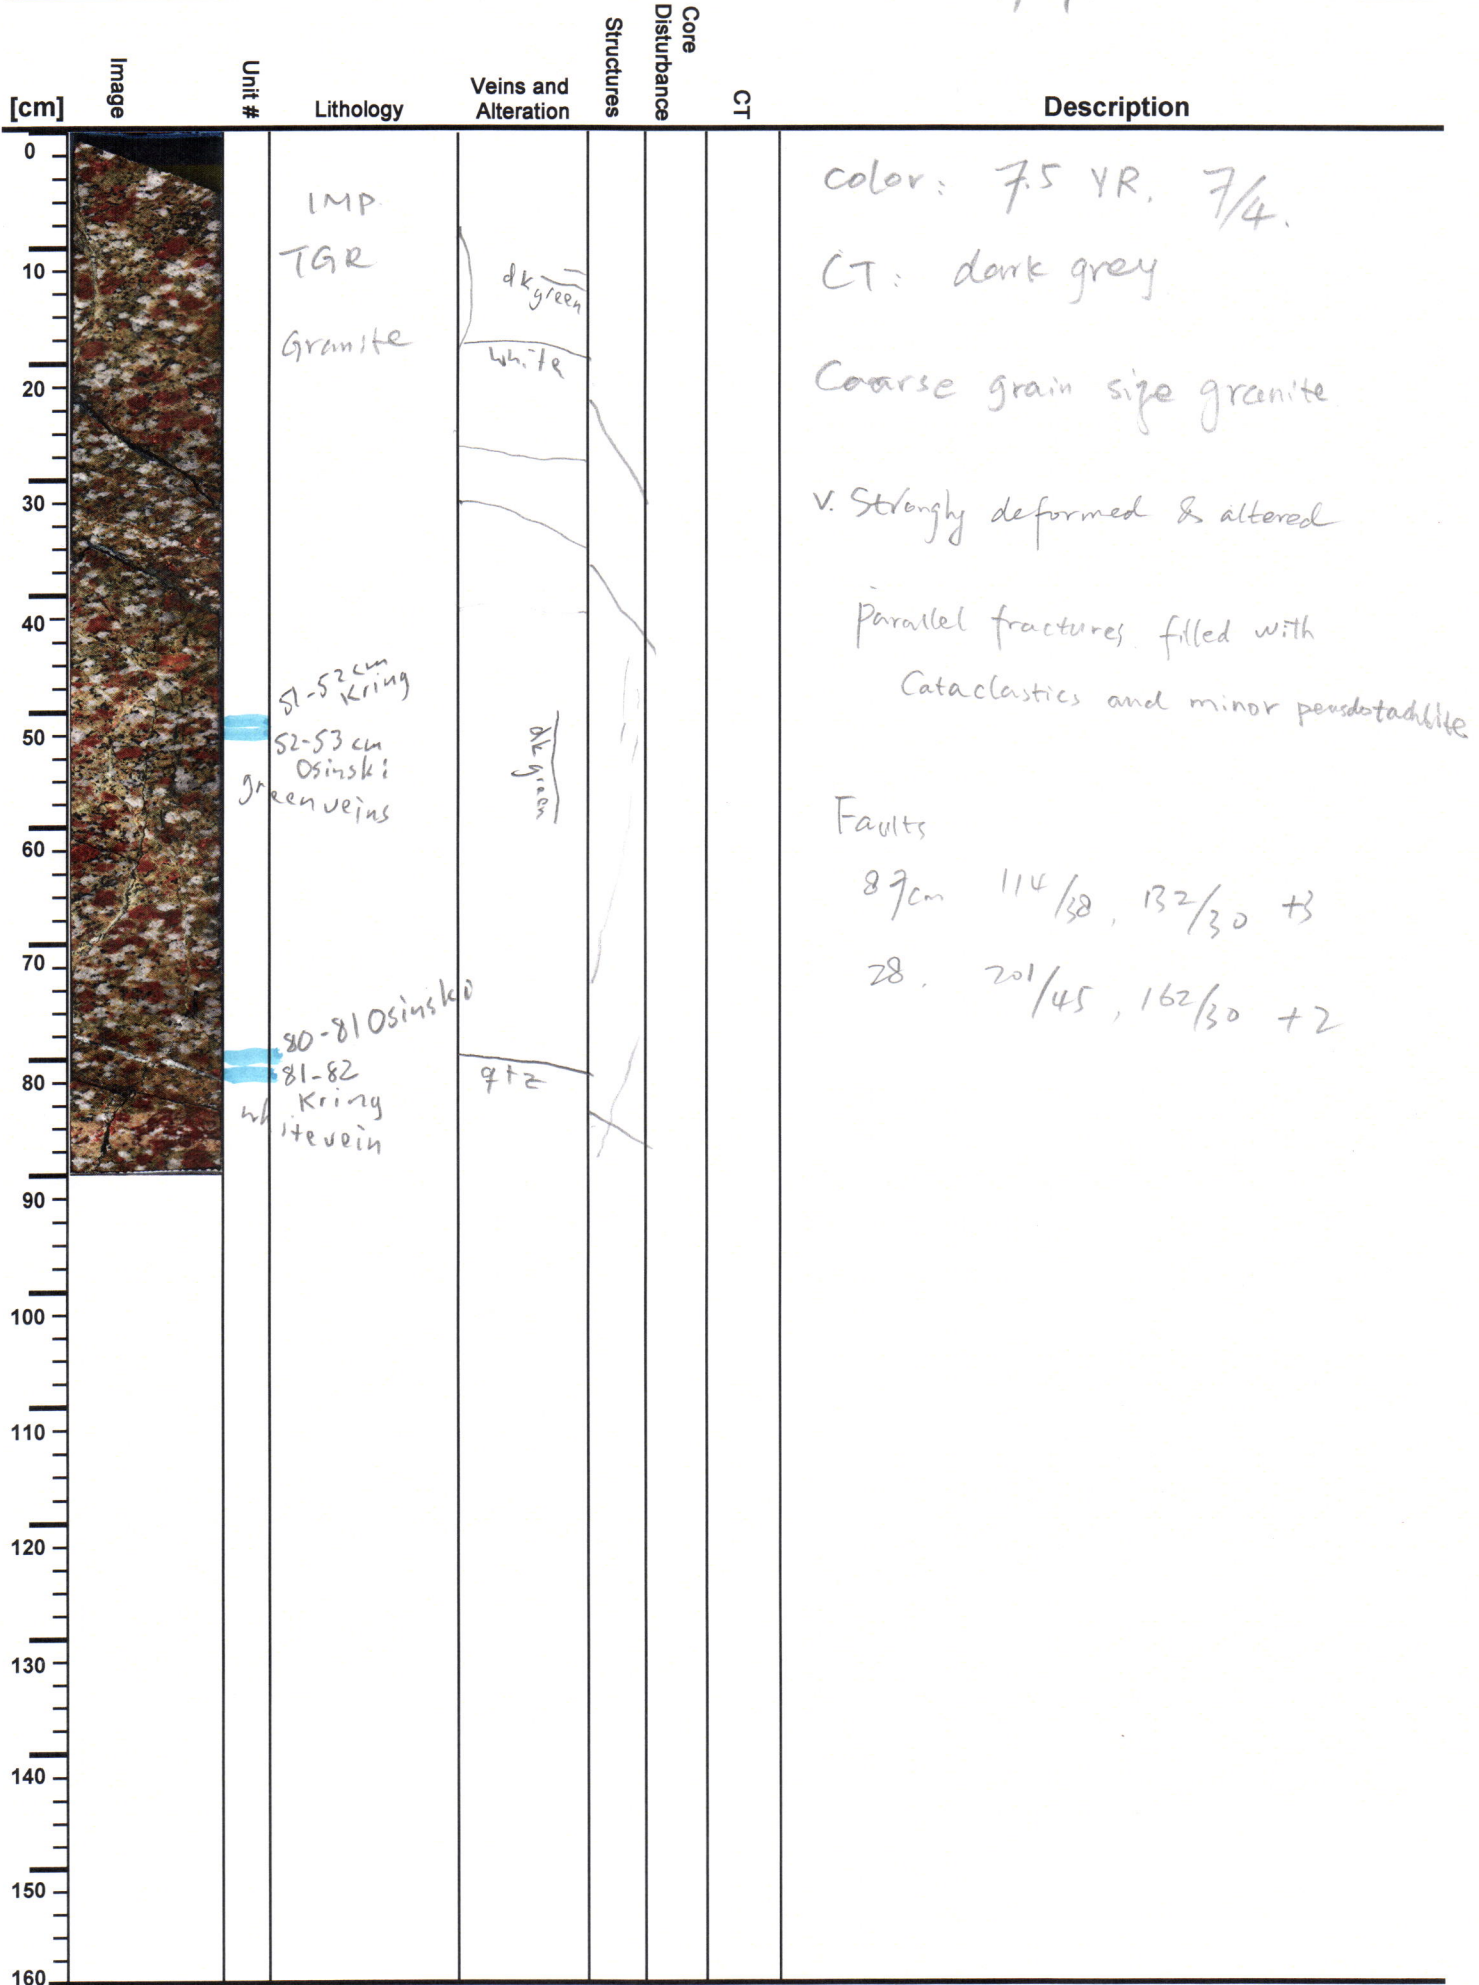 [cm]
Image
Unit #
Lithology
Veins and
Alteration
Structures
Core
Disturbance
CT
Description
0
10
20
30
40
50
60
70
80
90
100
110
120
130
140
150
160
IMP.
TGR
Granite
51-52 cm
Kring
52-53 cm
Osinski
green veins
80-81 Osinski
81-82
Kring
white vein
dk
green
white
dk
green
qtz
color: 7.5 YR. 7/4.
CT: dark grey
Coarse grain size granite
v. Strongly deformed & altered
parallel fractures filled with
Cataclastics and minor
Faults
cm 114/38, 132/30 +3
28. 201/45, 162/30 +2